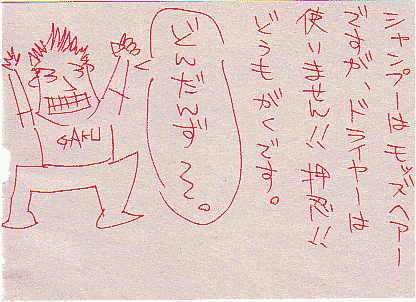 シャンプーはモッズヘアー
ですが、ドライヤーは
使いません!!
どうもがくです。
どんだんず〜〜。
GAKU